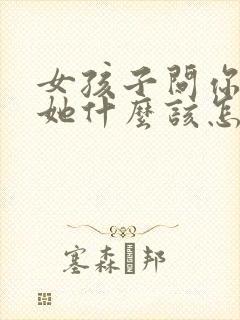 女孩子問你
她什麼該怎
塞森邦